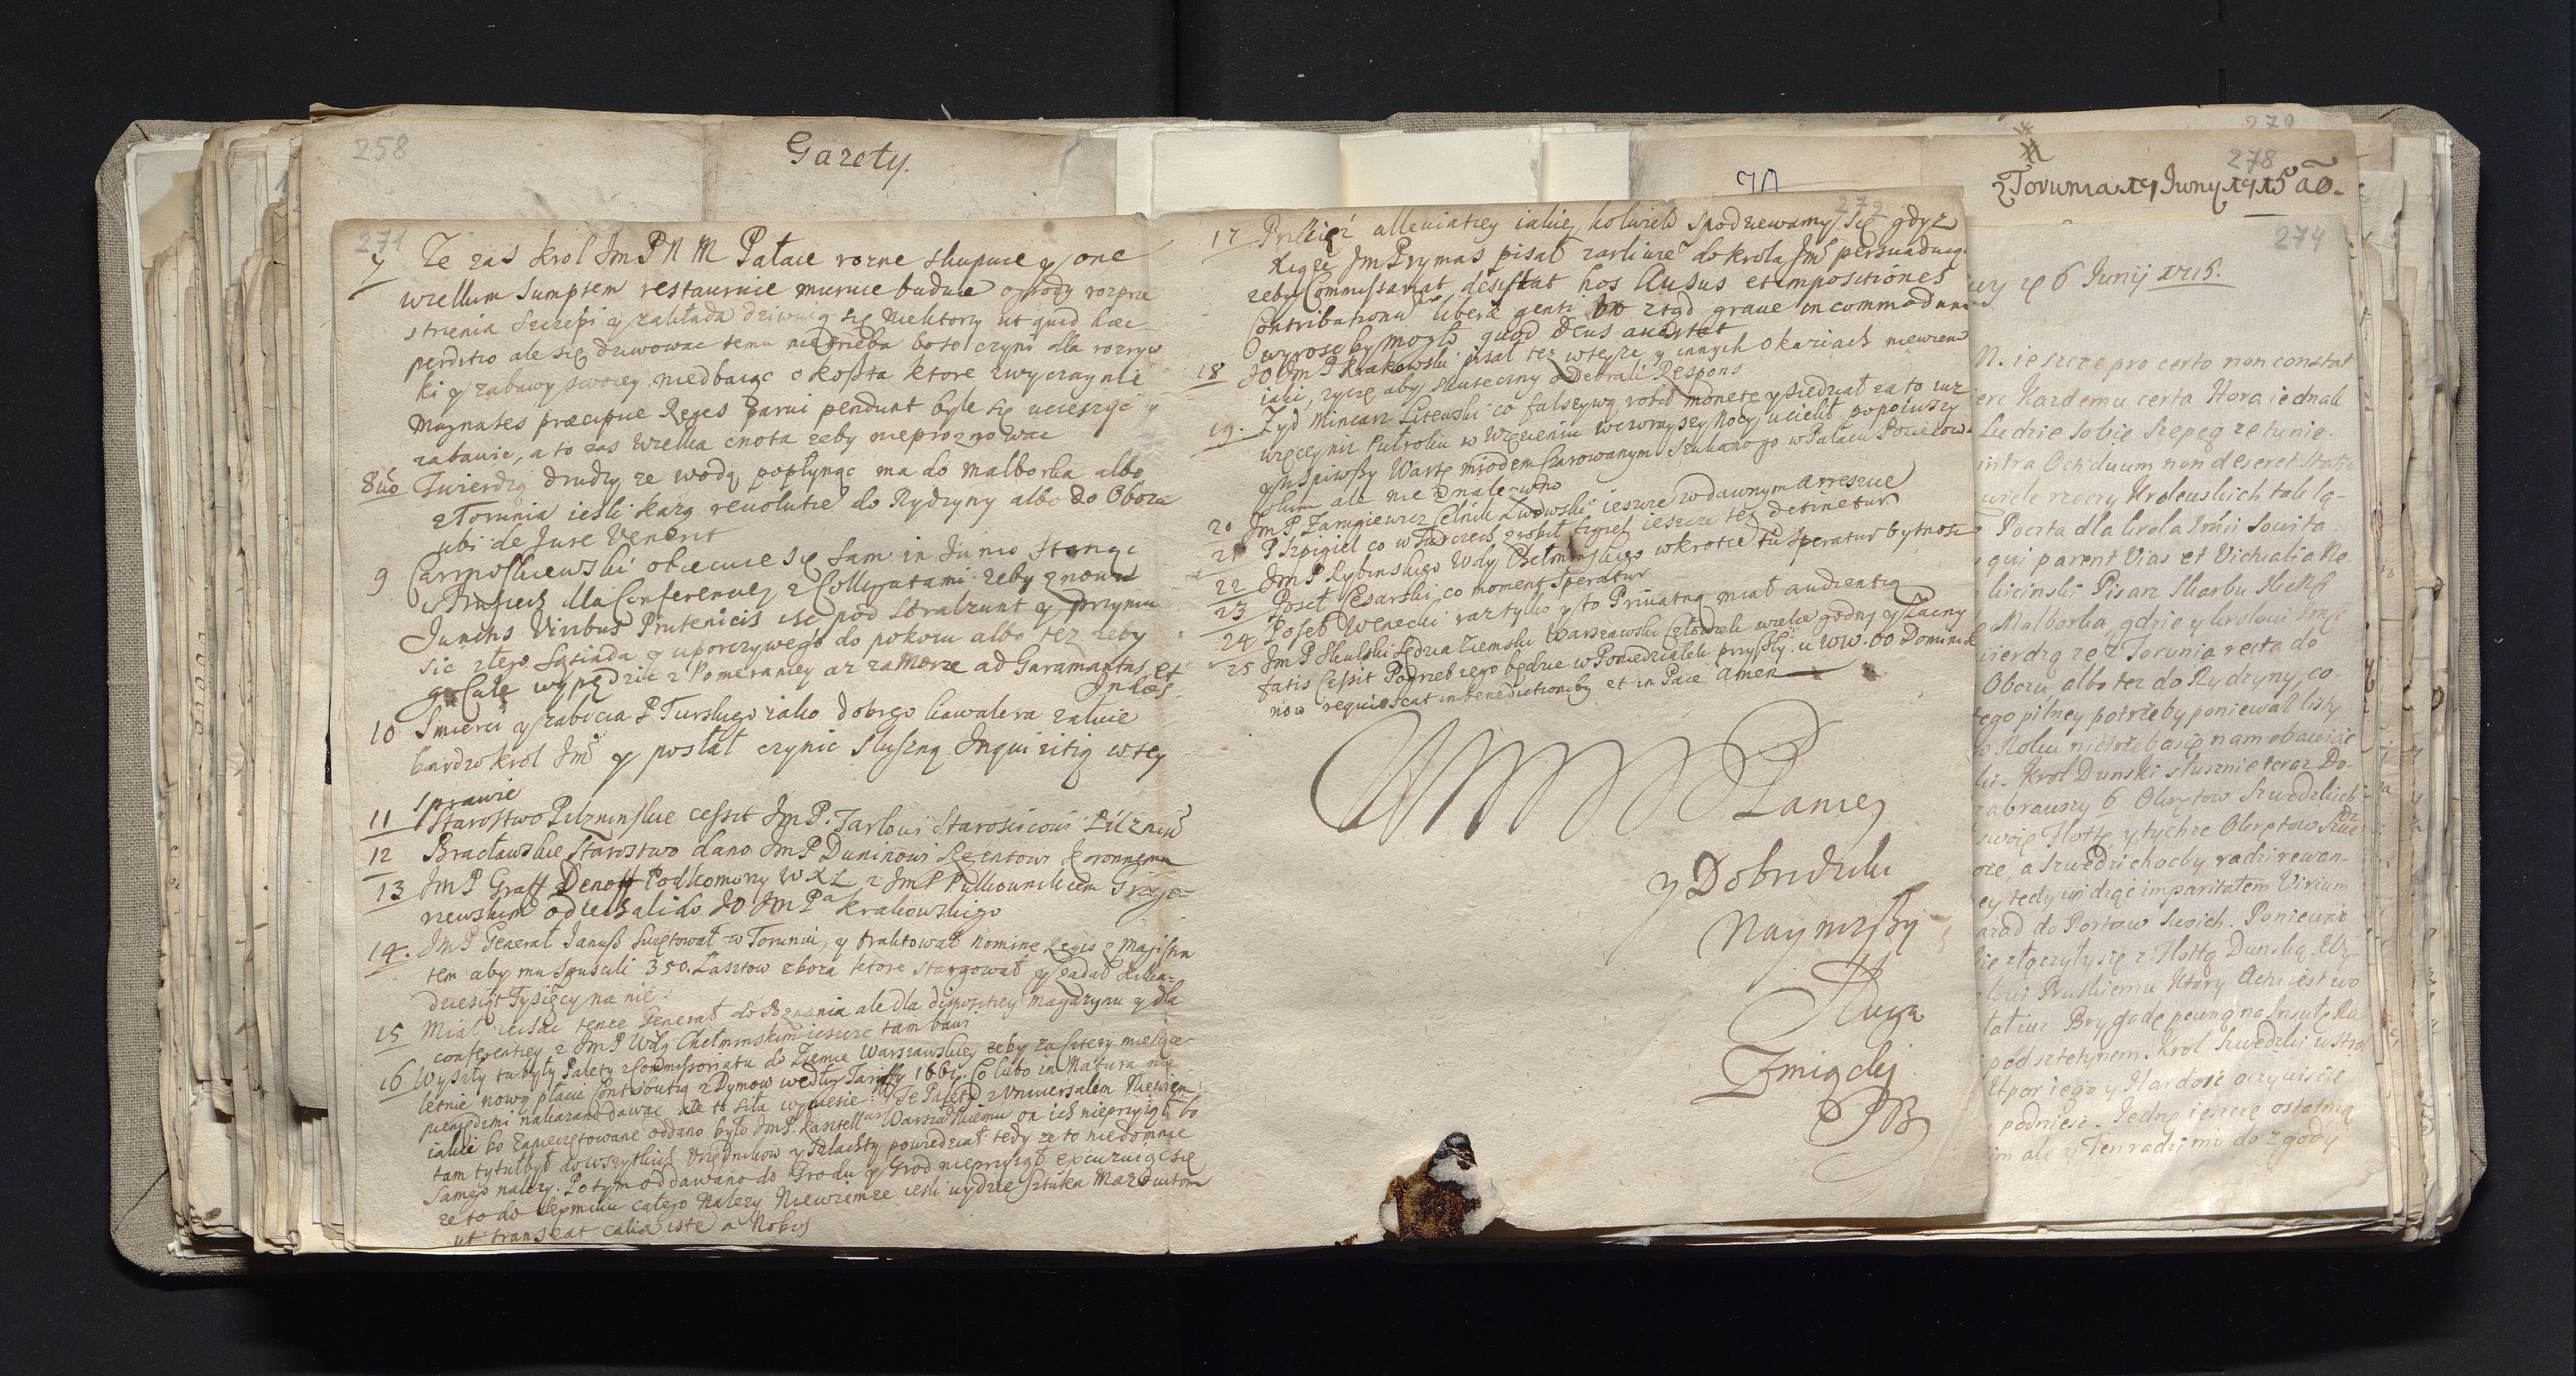 258
Gazety.
271
7 Ze zas Krol Jm P N M Pałace rozne skupuie y one
wielkum sumptem restauruie muruie buduie ogrody rozprze
strzenia szczepi y zakłada dziwuią się niektorzy ut quid haec
perditio ale się dziwowac temu nietrzeba bo to czyni dla rozryw
ki y zabawy swoiey niedbaiąc o koszta ktore zwyczaynie
Magnates praecipue Reges parvi pendunt byle się ucieszyć y
zabawić, a to zas wielka cnota zeby nieproznowac
8uo Twierdzą drudzy ze wodą popłynąc ma do Malborka albo
z Torunia iesli każą revolutie do Rydzyny albo do Oboza
ubi de Jure Venerit
9 Carmoskiewski obiecuie się sam in Junio stanąc
w Prusiech dla Conferenciey z Colligatami zeby znowu
Junctis Viribus Prutenicis isc pod Stralzunt y przymu
sic złego Sąsiada y uporczywego do pokoiu albo tez zeby
go całe wypędzic z Pomeraniey az za Morze ad Garamantas et
Indos
10 Smierci y zabicia P Turskiego iako dobrego kawalera załuie
bardzo krol Jms y posłał czynic słuszną Inquizitią w tey
sprawie
11 Starostwo Pilzninskie cessit Jm P. Tarłowi Staroscicowi Pilznin
12 Bracławskie Starostwo dano Jm P Duninowi Regentowi Koronnemu
13 Jm P Graff Denoff Podkomorzy W X L z Jm P Pułkownikiem Grzyo-
newskim odiechali do JO Jm Pa Krakowskiego
14. Jm P Generał Janusz kurętował w Toruniu, y traktował nomine Regis z Magistra
tem aby mu spuscili 350. Łasztow zboza ktore stargował y zadał kilka-
dziesiąt Tysięcy na nie
15 Miał iechac tenze Generał do Poznania ale dla dispozitiey magazynu y dla
conferentiey z Jm P Wdą Chełminskim ieszcze tam bawi
16 Wyszły tu były Palety z Commissoriatu do Ziemie Warszawskiey zeby za cztery miesiące
letnie nową płacic Contributią z Dymow według Tariffy 1661. Co lubo in Natura nie
pieniędzmi nakazano dawac ale to siła wyniesie. Te Palety z Uniwersałem niewiem
iakie bo zapieczętowane oddano było Jm P. Kasztellanowi Warszawskiemu on ich nieprzyiął bo
tam tytuł był do wszytkich Urzędnikow y szlachty powiedział tedy ze to nie do mnie
samego nalezy. Potym oddawano do Grodu y Grod nieprzyiął excuzuiąc się
ze to do Seymiku całego nalezy Niewiemze iesli uydzie sztuka Mazowitom
ut transeat calix iste a Nobis
272
17 Przecięż alleviatiey iakiey kolwiek spodziewamy się gdyz
Xiąże Jm Prymas pisał zarliwie do krola Jms persuaduiąc
zeby Commissariat desistat hos Ausus et impositiones
Contributionu libera genti bo ztąd grave incommodum
wyrosc by mogło quod Deus avertat
18 JO Jm P Krakowski pisał tez w teyze y innych okaziach niewiem
iaki, zyczę aby skuteczny odebrali Respons
19. Zyd Mincarz Litewski co fałszywą robił monetę y siedział za to iuz
więcey niz Pułroku w Więzieniu wczorayszey Nocy uciekł popoiwszy
y uspiwszy Wartę miodem czarowanym szukano go w Pałacu Pociejow-
skim ale nie znaleziono
20 Jm P Zamgiewicz Celnik Lwowski ieszcze w dawnym Arreszcie
21 P Szpigiel co w Turczech zrobił figiel ieszcze tez detinetur
22 Jm P Rybinskiego Wdy Chełminskiego wkrotce tu speratur bytnosc
23 Poseł Cesarski co moment speratur
24 Poseł Wenecki raz tylko y to Prywatną miał audientią
25 Jm P Skulski Sędzia Ziemski Warszawski Człowiek wielce godny y zacny
fatis cessit Pogrzeb iego będzie w Poniedziałek przyszły u WW. OO Dominik
now requiescat in benedictionibg et in Pace Amen
WMMM Paniey
y Dobrodziki
Nayniższy
Sługa
Zmigdij
PB
278
z Torunia 19 Juny 1715 ao
274
wy ze 6 Junij 1715.
N. ieszcze pro certo non constat
erc Kazdemu certa Hora iednak
Ludzie sobie szepcą ze tunie.
intra Octiduum non deseret Statu
wiele rzeczy Krolewskich tak lą-
Poczta dla krola Jmci sowita
qui parent Vias et Victualia Re
kicinski Pisarz Skarbu
Malborka, gdzie y krolowi Jmsc
wierdzą ze z Torunia recta do
Obozu, albo tez do Rydzyny, co
tego pilney potrzeby poniewasz listy
Roku nietrzeba się nam obawiac
ki. Krol Dunski słusznie teraz Do-
zabrawszy 6 Okrętow Szwedzkich
swoię Flottę, y tychze Okrętow Szwe
oze, a Szwedzi chocby radzi rewan-
ey tedy widząc imparitatem Virium
azad do Portow swoich. Poniewaz
ie złączyły się z Flottą Dunską. Wy-
lowi Pruskiemu ktory Ochi iest wo
tał iuz Brygadę pewną na Insułę Ru
pod sztetynem. Krol Szwedzki w Stral
Upor iego y Hardość oczywiscie
podniesc. Jednę ieszcze ostatnią
im ale y Ten radzi mu do zgody